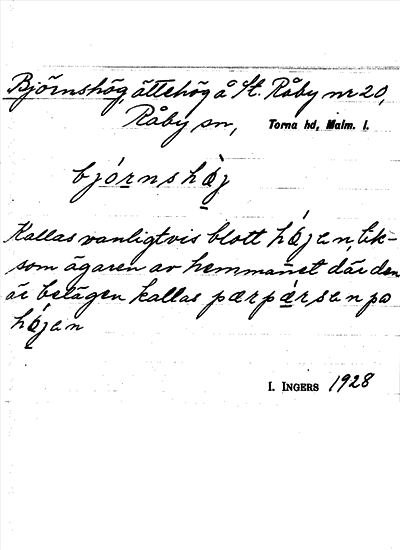 Björnshög, ättehög å St. Råby nr 20,
Råby sn, Torna hd, Malm. l.
bjórnshǿj
Kallas vanligtvis blott hǿjan, lik-
som ägaren av hemmanet där den
är belägen kallas pærpǽrsan pa
hǿjan
I. INGERS 1928